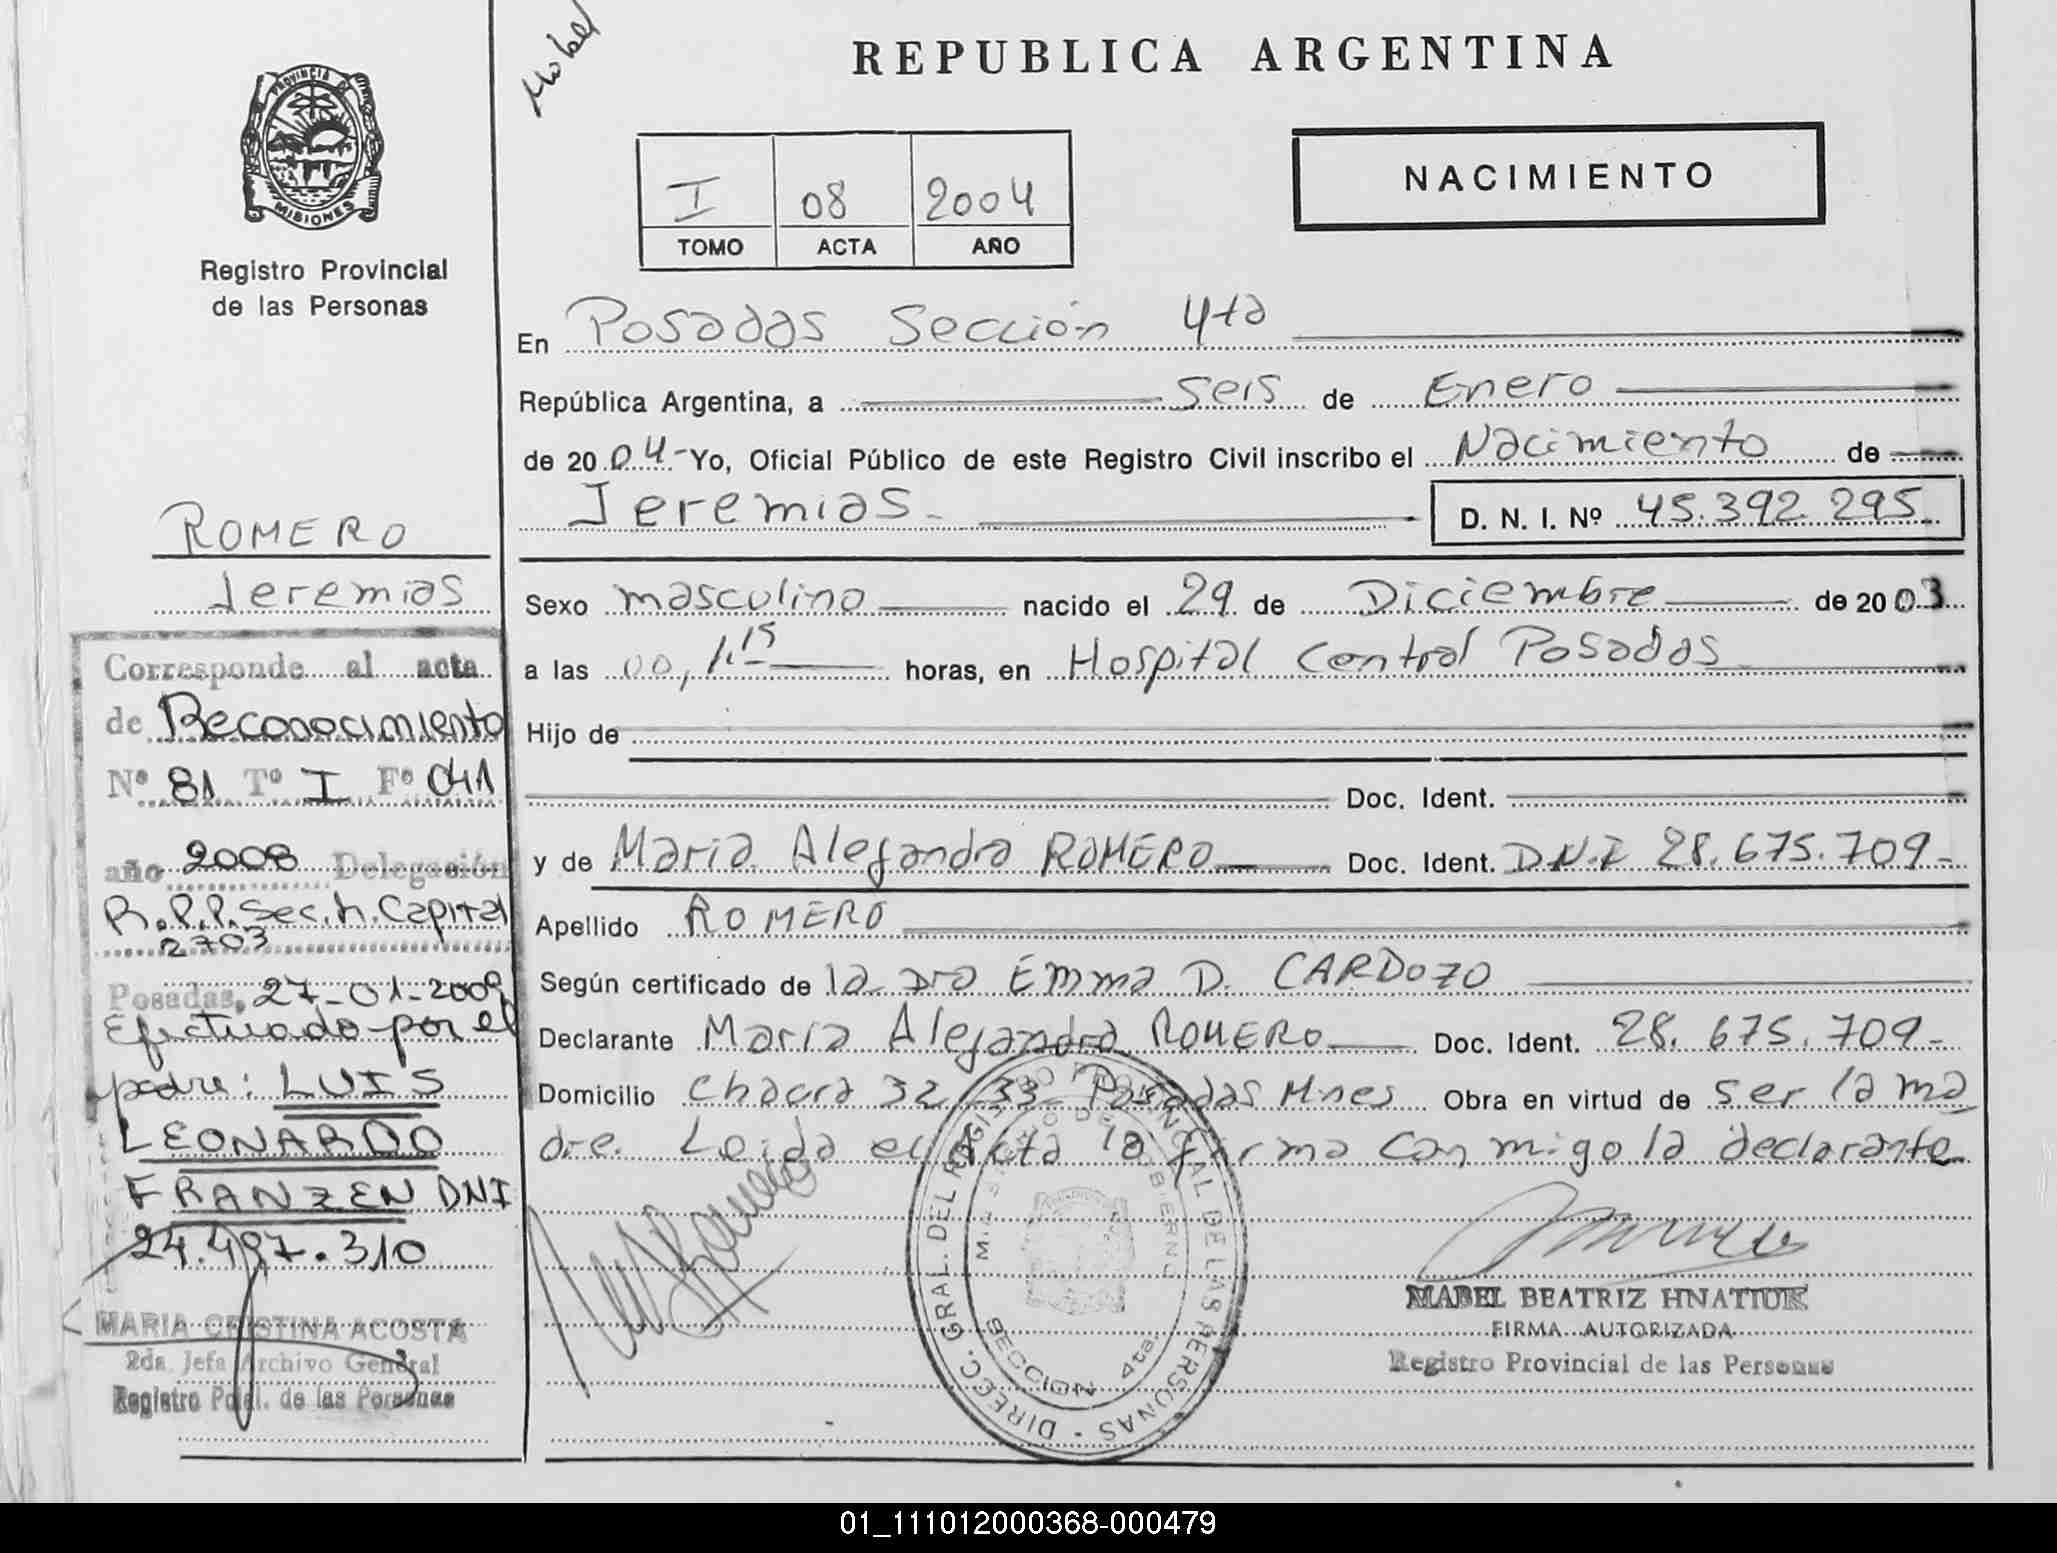 Mabel
REPUBLICA ARGENTINA
PROVINCIA DE
MISIONES
Registro Provincial
de las Personas
I 08 2004
TOMO ACTA AÑO
NACIMIENTO
En Posadas Sección 4ta
República Argentina, a seis de Enero
de 2004- Yo, Oficial Público de este Registro Civil inscribo el Nacimiento de
Jeremias- D. N. I. Nº 45.392.295
Sexo masculino nacido el 29 de Diciembre de 2003
a las 00, horas, en Hospital Central Posadas
Hijo de
Doc. Ident.
y de Maria Alejandra ROMERO Doc. Ident. D.N.I 28.675.709-
Apellido ROMERO
Según certificado de la Dra Emma D. CARDOZO
Declarante Maria Alejandra ROMERO Doc. Ident. 28.675.709-
Domicilio Chacra 32/33 Posadas Mnes Obra en virtud de ser la ma
dre. Leida el Acta la firma conmigo la declarante
DIRECC. GRAL. DEL REGISTRO PROVINCIAL DE LAS PERSONAS -
SECCION 4ta.
MABEL BEATRIZ HNATIUK
FIRMA AUTORIZADA
Registro Provincial de las Personas
ROMERO
Jeremias
Corresponde al acta
de Reconocimiento
Nº 81 Tº I Fº 041
año 2008 Delegación
R.P.P. Sec. h. Capital
2703
Posadas, 27-01-2009
Efectuado por el
padre: LUIS
LEONARDO
FRANZEN DNI
24.497.310
MARIA CRISTINA ACOSTA
2da. Jefa Archivo General
Registro Pcial. de las Personas
01_111012000368-000479